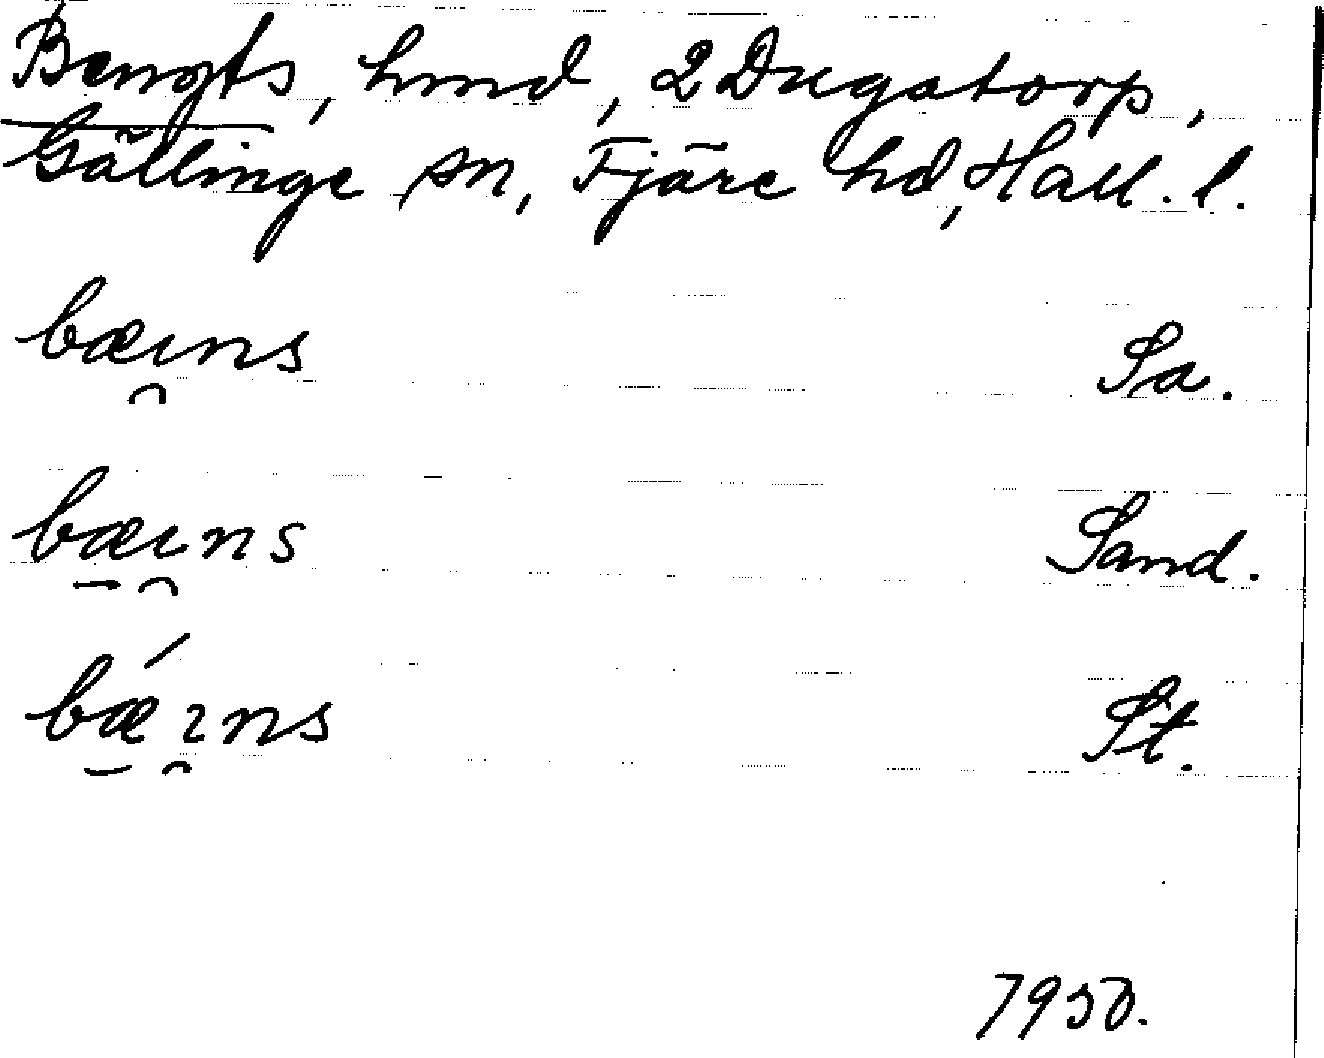 Bengts, hmd, 2 Dugatorp,
Gällinge sn, Fjäre hd, Hall. l.
bæıns Sa.
bæıns Sand.
bǽıns St.
1950.